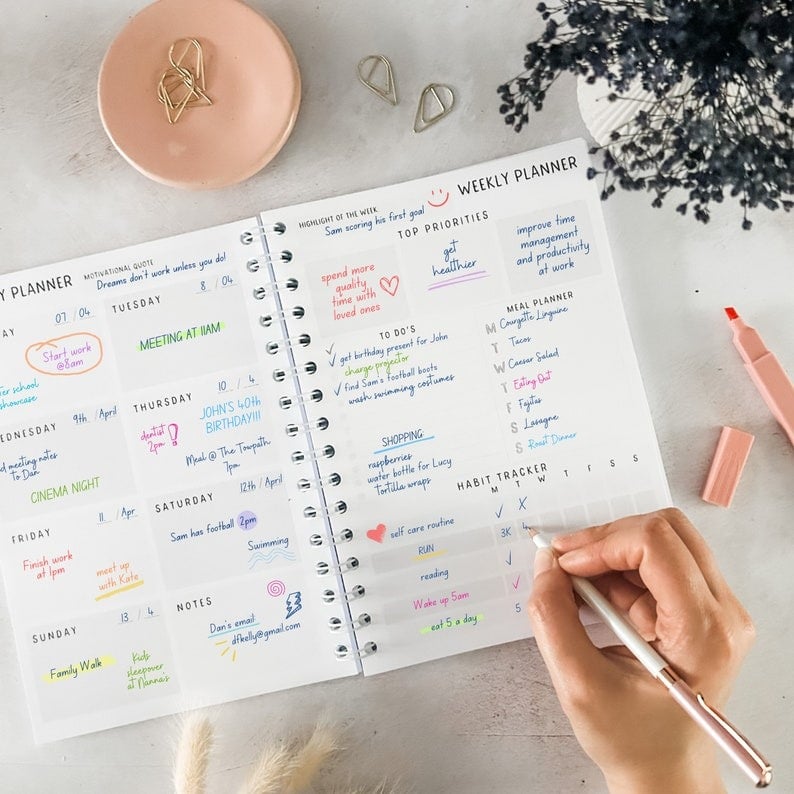 Y PLANNER
MOTIVATIONAL QUOTE
Dreams don't work unless you do!
AY
07 / 04
Start work
@8am
ter school
showcase
TUESDAY
8 / 04
MEETING AT 11AM
EDNESDAY
9th / April
d meeting notes
to Dan
CINEMA NIGHT
THURSDAY
10 / 4
dentist
2pm !
JOHN'S 40th
BIRTHDAY!!!
Meal @ The Towpath
7pm
FRIDAY
11 / Apr
Finish work
at 1pm
meet up
with Kate
SATURDAY
12th / April
Sam has football 2pm
Swimming
SUNDAY
13 / 4
Family Walk
Kids
sleepover
at Nanna's
NOTES
Dan's email
dfkelly@gmail.com
HIGHLIGHT OF THE WEEK
Sam scoring his first goal
WEEKLY PLANNER
TOP PRIORITIES
spend more
quality
time with
loved ones
get
healthier
improve time
management
and productivity
at work
TO DO'S
get birthday present for John
charge projector
find Sam's football boots
wash swimming costumes
SHOPPING
raspberries
water bottle for Lucy
tortilla wraps
MEAL PLANNER
M Courgette Linguine
T Tacos
W Caesar Salad
T Eating Out
F Fajitas
S Lasagne
S Roast Dinner
HABIT TRACKER
M T W T F S S
self care routine ✓ X
RUN 3K 4
reading ✓
Wake up 5am ✓
eat 5 a day 5